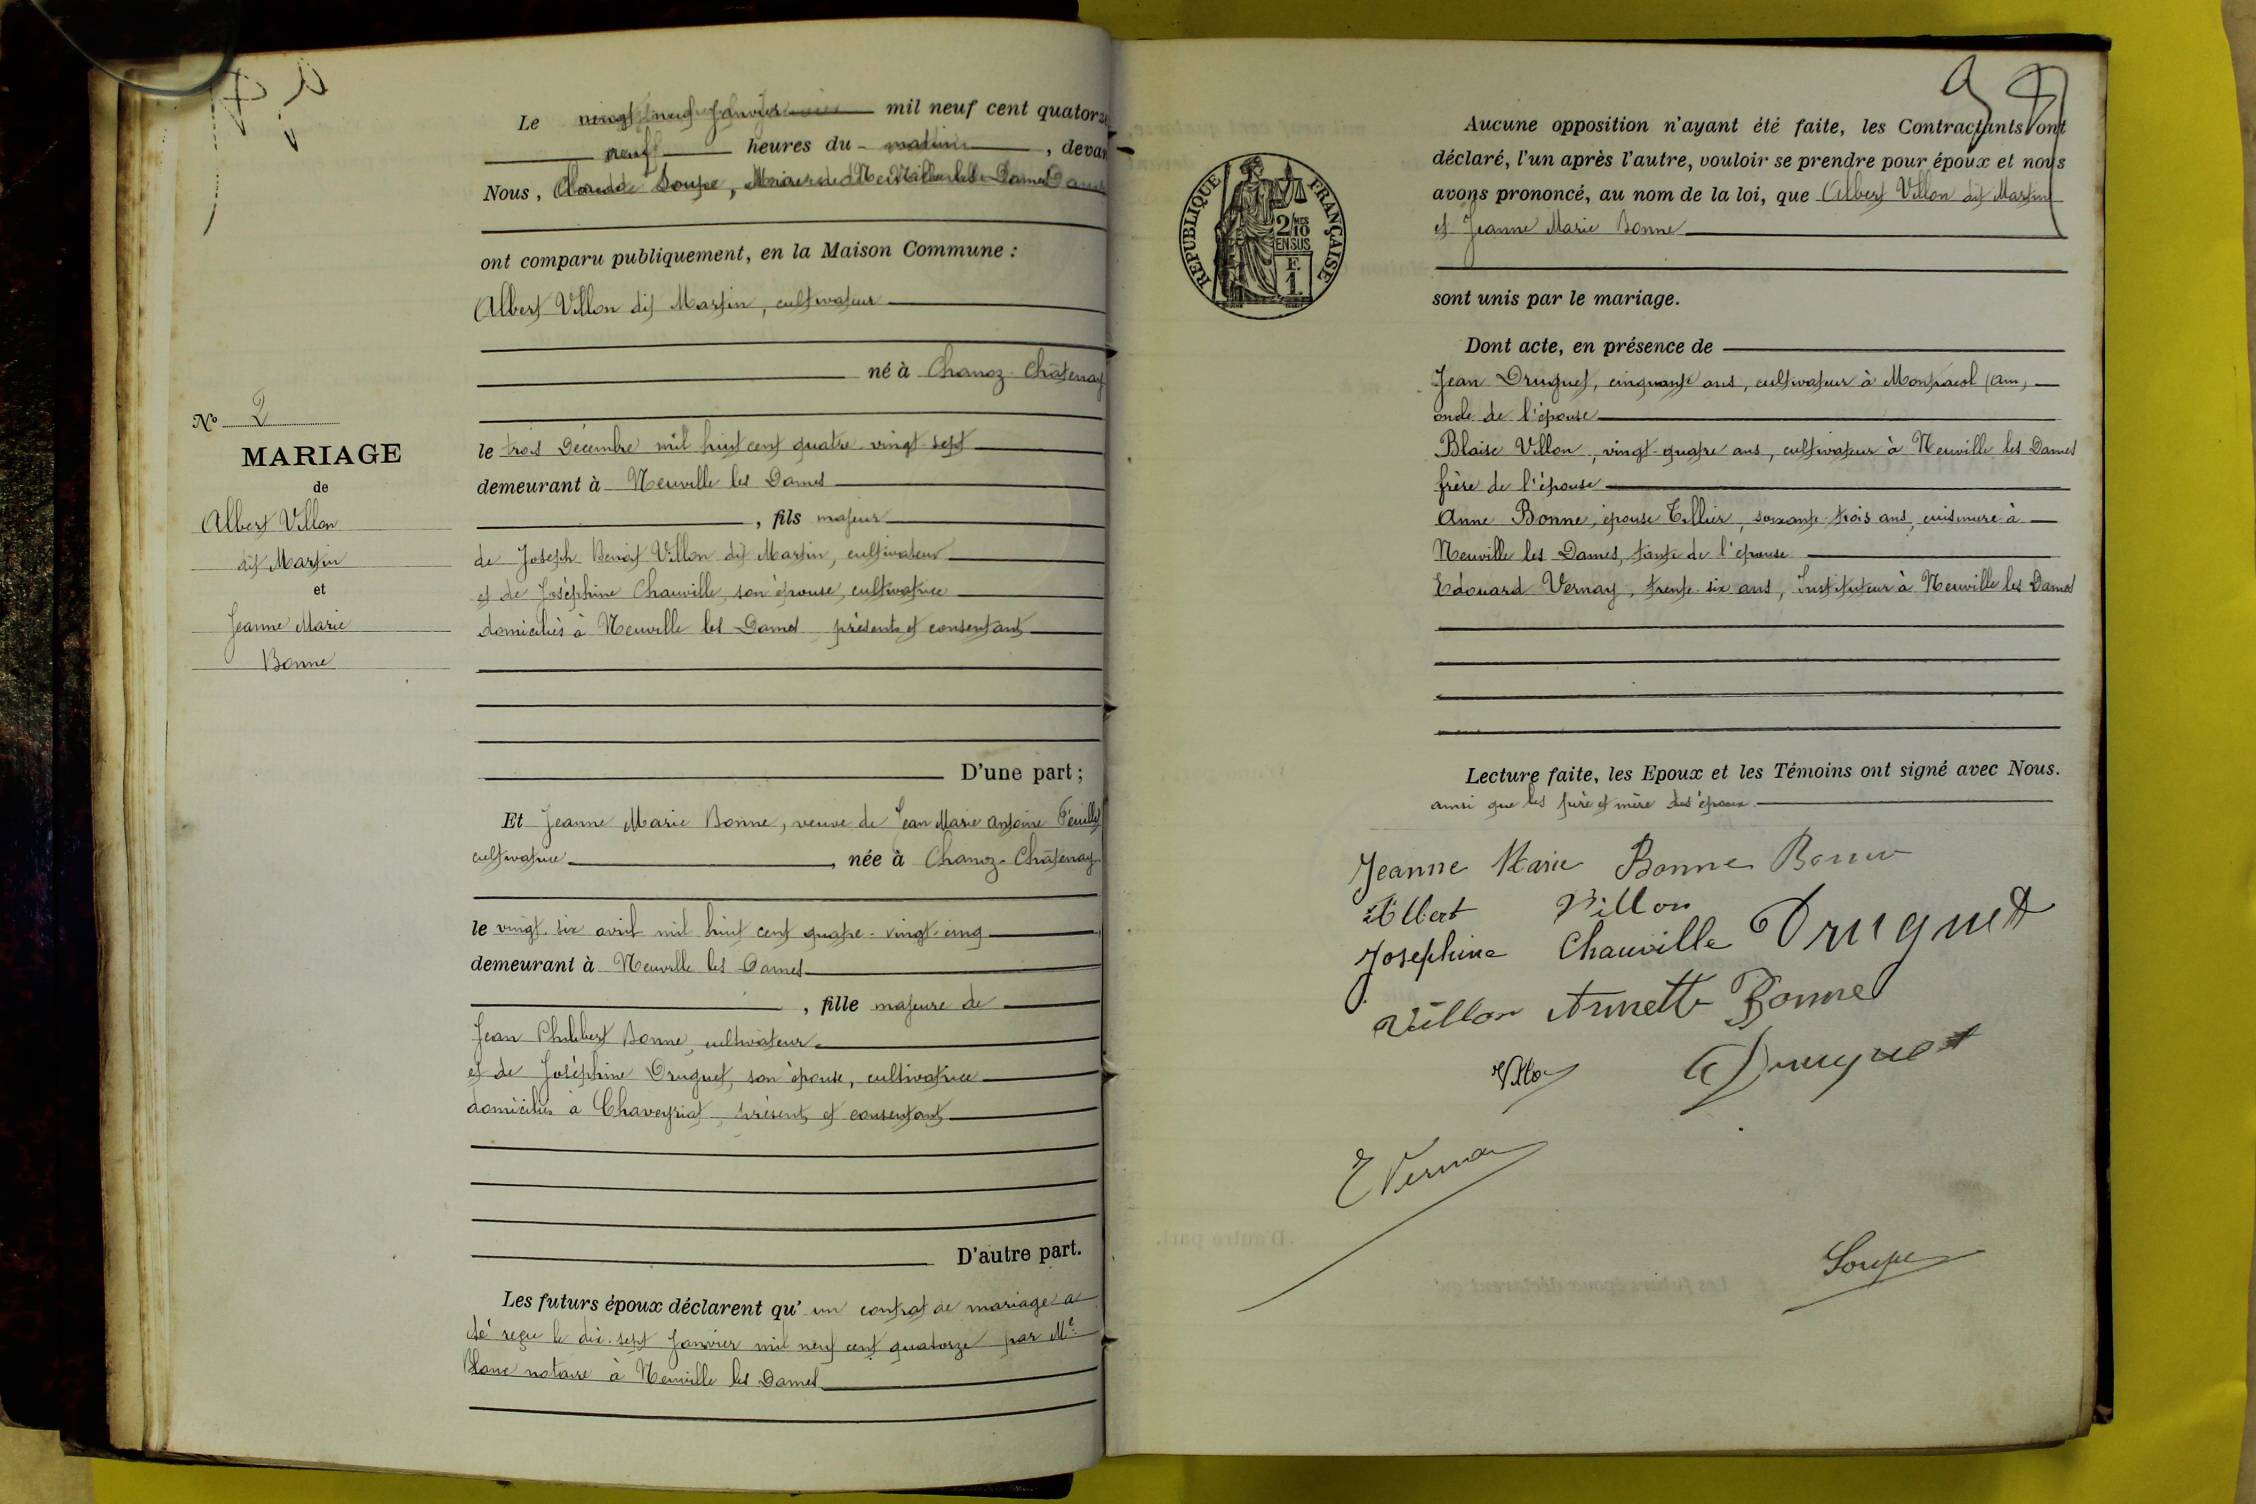 Le vingt neuf Janvier mil neuf cent quatorze
neuf heures du matin, devant
Nous, Claude Soupe, Maire de Neuville les Dames
ont comparu publiquement, en la Maison Commune :
Albert Villon dit Martin, cultivateur
né à Chanoz-Châtenay
le trois Décembre mil huit cent quatre-vingt sept
demeurant à Neuville les Dames
, fils majeur
de Joseph Benoit Villon dit Martin, cultivateur
et de Joséphine Chauville, son épouse, cultivatrice
domiciliés à Neuville les Dames présents et consentant
D'une part ;
N° 2
MARIAGE
de
Albert Villon
dit Martin
et
Jeanne Marie
Bonne
Et Jeanne Marie Bonne, veuve de Jean Marie Antoine
cultivatrice, née à Chanoz-Châtenay
le vingt-six avril mil huit cent quatre-vingt-cinq
demeurant à Neuville les Dames
, fille majeure de
Jean Philibert Bonne, cultivateur
et de Joséphine Druguet, son épouse, cultivatrice
domiciliés à Chaveyriat, présents et consentant
D'autre part.
Les futurs époux déclarent qu'un contrat de mariage a
été reçu le dix-sept Janvier mil neuf cent quatorze par Me
Blanc notaire à Neuville les Dames
RÉPUBLIQUE FRANÇAISE
2/10 MES
EN SUS
F.
1.
Aucune opposition n'ayant été faite, les Contractants ont
déclaré, l'un après l'autre, vouloir se prendre pour époux et nous
avons prononcé, au nom de la loi, que Albert Villon dit Martin
et Jeanne Marie Bonne
sont unis par le mariage.
Dont acte, en présence de
Jean Druguet, cinquante ans, cultivateur à Montracol (Ain)
oncle de l'épouse
Blaise Villon, vingt-quatre ans, cultivateur à Neuville les Dames
frère de l'épouse
Anne Bonne, épouse Tillier, soixante-trois ans, cuisinière à
Neuville les Dames, tante de l'épouse
Edouard Vernay, trente-six ans, Instituteur à Neuville les Dames
Lecture faite, les Epoux et les Témoins ont signé avec Nous.
ainsi que les père et mère des époux
Jeanne Marie Bonne Bonne
Albert Villon
Josephine Chauville Druguet
Villon Annette Bonne
Villon Druguet
E Vernay
Soupe